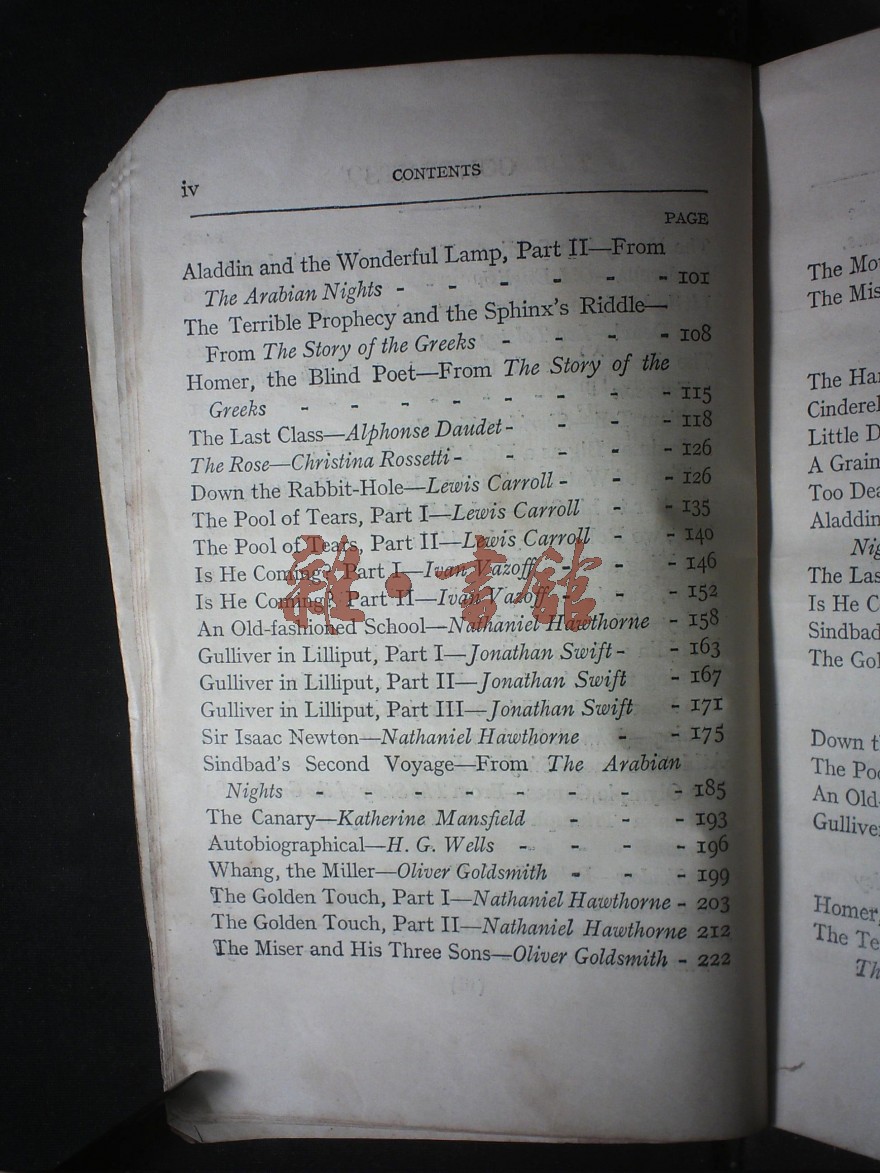 iv
CONTENTS
PAGE
Aladdin and the Wonderful Lamp, Part II—From
The Arabian Nights - - - - - - 101
The Terrible Prophecy and the Sphinx's Riddle—
From The Story of the Greeks - - - - 108
Homer, the Blind Poet—From The Story of the
Greeks - - - - - - - - 115
The Last Class—Alphonse Daudet - - - - 118
The Rose—Christina Rossetti - - - - - 126
Down the Rabbit-Hole—Lewis Carroll - - - 126
The Pool of Tears, Part I—Lewis Carroll - - 135
The Pool of Tears, Part II—Lewis Carroll - - 140
Is He Coming? Part I—Ivan Vazoff - - - 146
Is He Coming? Part II—Ivan Vazoff - - - 152
An Old-fashioned School—Nathaniel Hawthorne - 158
Gulliver in Lilliput, Part I—Jonathan Swift - - 163
Gulliver in Lilliput, Part II—Jonathan Swift - 167
Gulliver in Lilliput, Part III—Jonathan Swift - 171
Sir Isaac Newton—Nathaniel Hawthorne - - 175
Sindbad's Second Voyage—From The Arabian
Nights - - - - - - - - 185
The Canary—Katherine Mansfield - - - 193
Autobiographical—H. G. Wells - - - - 196
Whang, the Miller—Oliver Goldsmith - - - 199
The Golden Touch, Part I—Nathaniel Hawthorne - 203
The Golden Touch, Part II—Nathaniel Hawthorne 212
The Miser and His Three Sons—Oliver Goldsmith - 222
雜·書館
The
The
The
Little
A Grain
Too
Aladdin
The
Is He
Sindbad
The
Down
The
An
Homer,
The